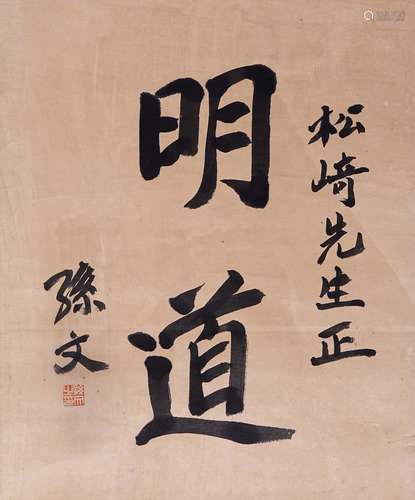 松﨑先生正
明道
孫文